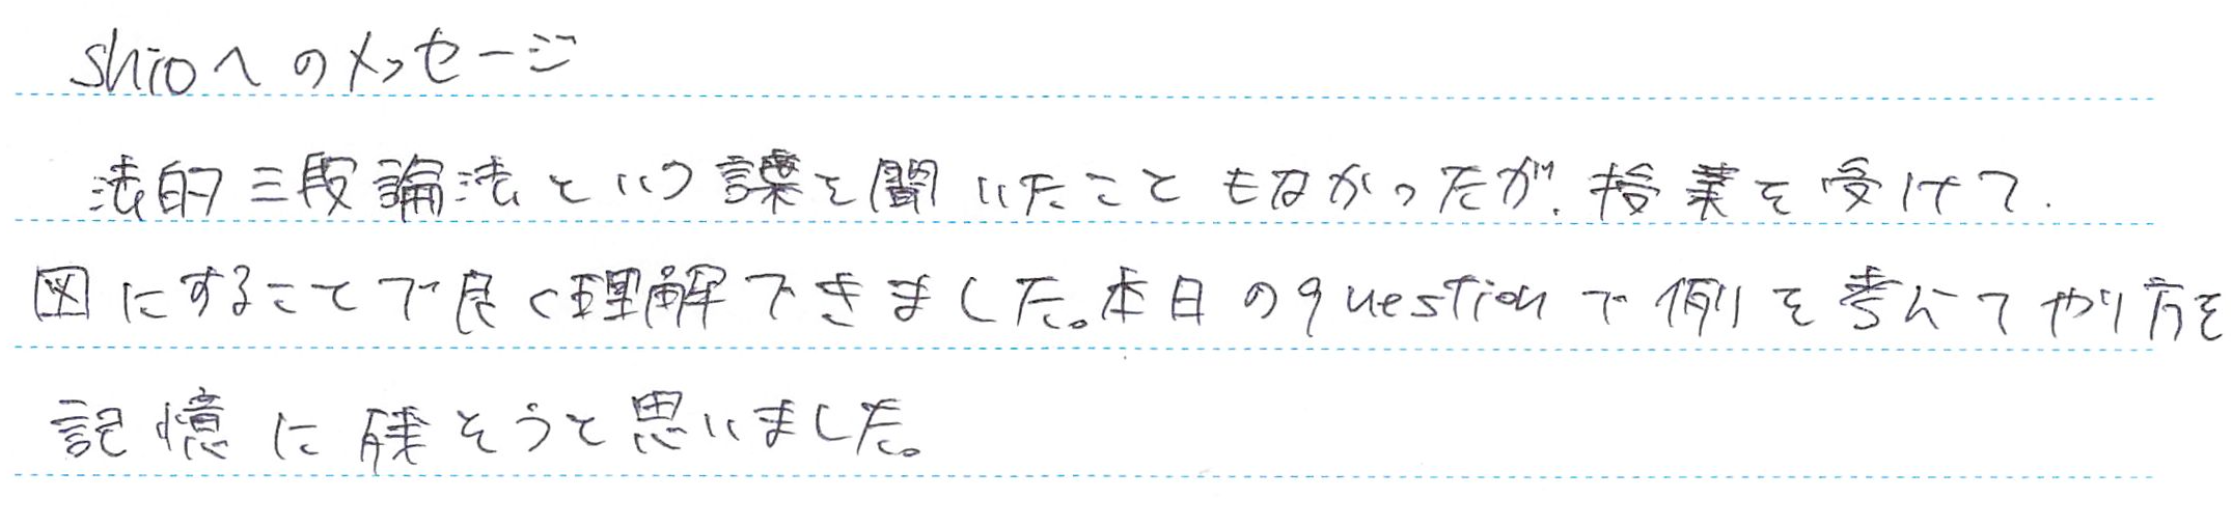 shioへのメッセージ
法的三段論法という言葉を聞いたこともなかったが、授業を受けて、
図にすることで良く理解できました。本日のquestionで例を考えてやり方を
記憶に残そうと思いました。